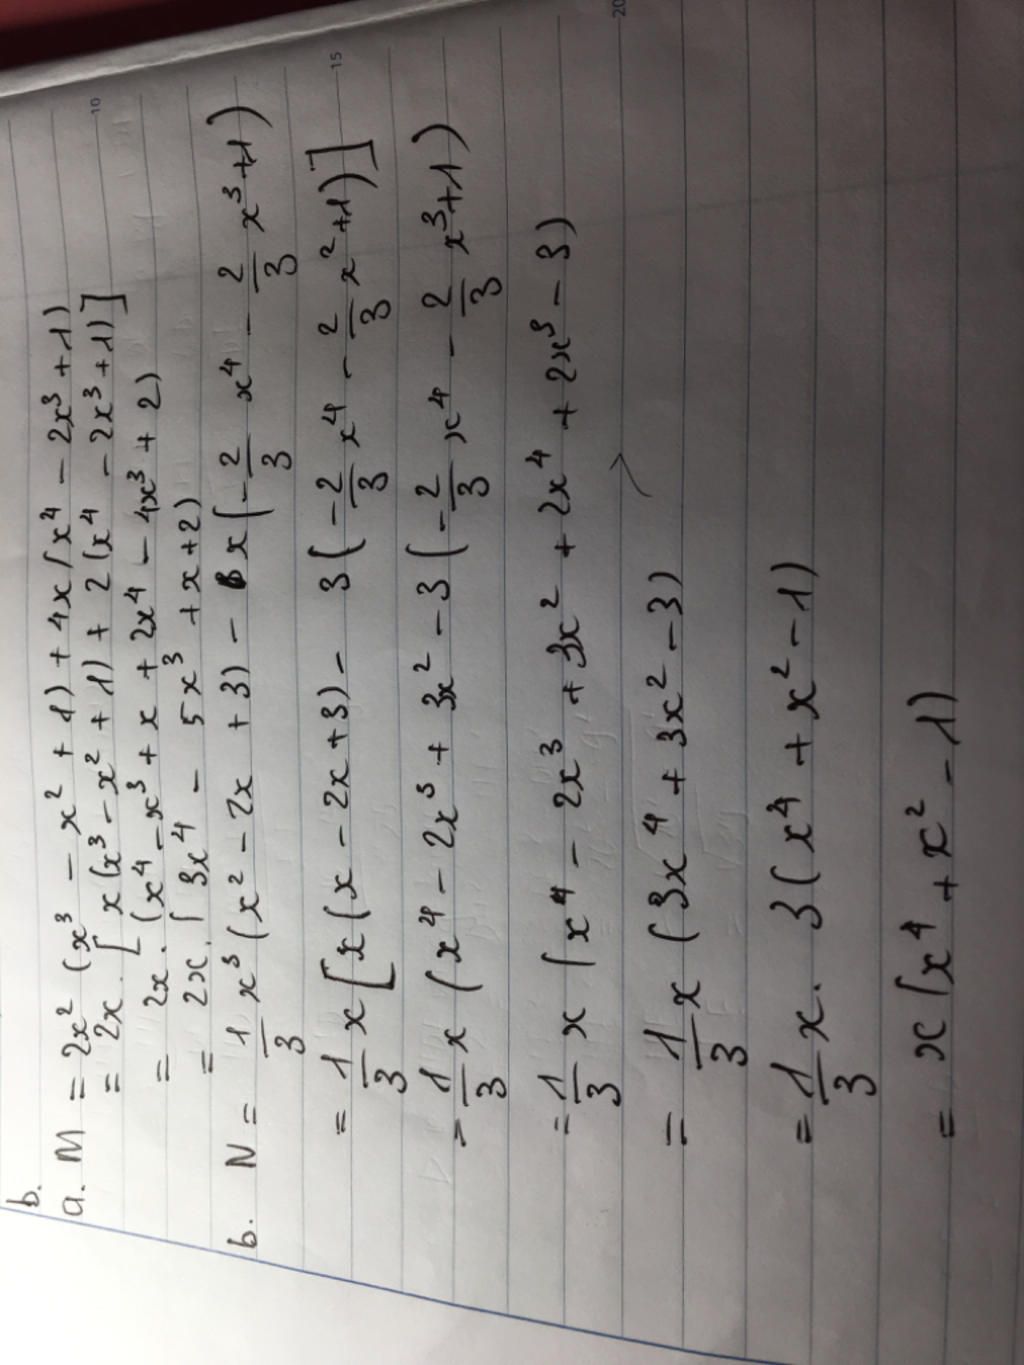 b.
a. M = 2x² (x³ - x² + 1) + 4x (x⁴ - 2x³ + 1)
= 2x . [x (x³ - x² + 1) + 2 (x⁴ - 2x³ + 1)]
= 2x . (x⁴ - x³ + x + 2x⁴ - 4x³ + 2)
= 2x . (3x⁴ - 5x³ + x + 2)
b. N = 1/3 x³ (x² - 2x + 3) - x (-2/3 x⁴ - 2/3 x³ + 1)
= 1/3 x [x (x - 2x + 3) - 3 (-2/3 x⁴ - 2/3 x² + 1)]
= 1/3 x (x⁴ - 2x³ + 3x² - 3 (-2/3 x⁴ - 2/3 x³ + 1)
= 1/3 x (x⁴ - 2x³ + 3x² + 2x⁴ + 2x³ - 3)
= 1/3 x (3x⁴ + 3x² - 3)
= 1/3 x . 3 (x⁴ + x² - 1)
= x (x⁴ + x² - 1)
10
15
20